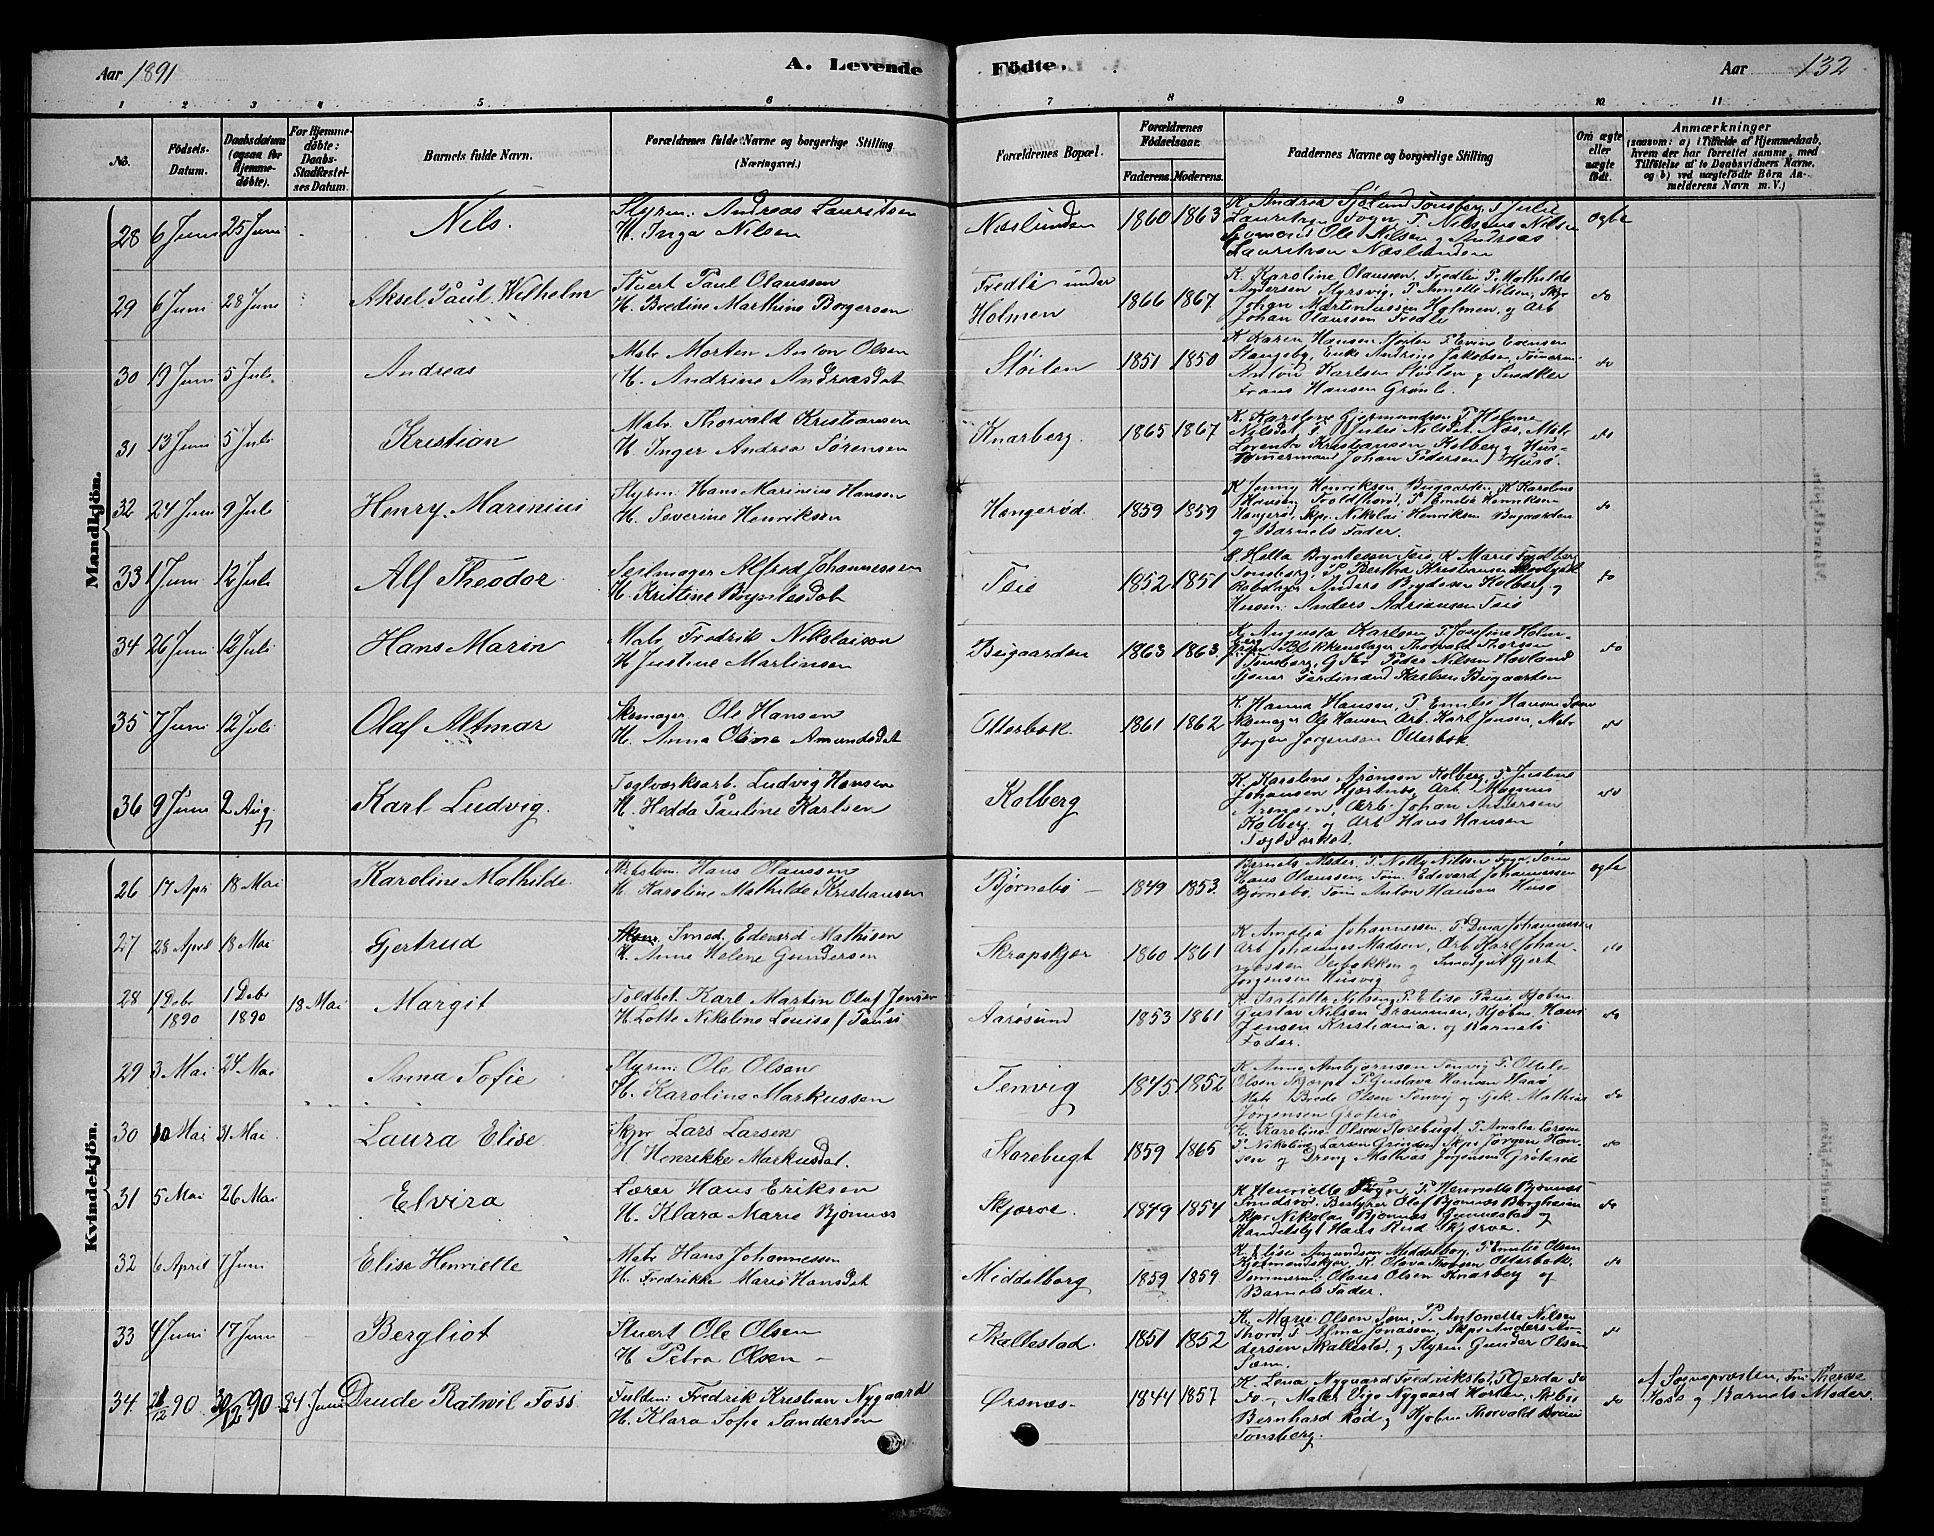 Aar 1891
A. Levende
Födte.
Aar 132
1 2 3 4 5 6 7 8 9 10 11
No.
Födsels-Datum.
Daabsdatum (ogsaa for Hjemme-döbte).
For Hjemme-döbte: Daabs-Stadfæstel-ses Datum.
Barnets fulde Navn.
Forældrenes fulde Navne og borgerlige Stilling
(Næringsvei.)
Forældrenes Bopæl.
Forældrenes Födselsaar.
Faderens. Moderens.
Faddernes Navne og borgerlige Stilling
Om ægte eller uægte födt.
Anmærkninger
(saasom: a) i Tilfælde af Hjemmedaab,
hvem der har forrettet samme, med
Tilföielse af to Daabsvidners Navne,
og b) ved uægtefödte Börn An-
melderens Navn m. V.)
Mandkjön.
28 6 Juni 25 Juni Nils.
Styrm: Andreas Lauritsen
H. Inga Nilsen
Næslunden 1860 1863
Lauritsen Næslunden
ægte
29 6 Juni 28 Juni Aksel Paul Wilhelm
Stuert Paul Olaussen
H. Bredine Marthine Borgersen
Fredli under
Holmen 1866 1867
K. Karoline Olaussen, Fredli P. Mathilde
Andersen Styrsvig, P. Annette Nilsen, Skpr
Johan Martiniussen Holmen, og Arb
Johan Olaussen Fredli
do
30 19 Juni 5 Juli Andreas
Matr Morten Anton Olsen
H. Andrine Andreasdat
Stoiten 1851 1850
Anton Karlsen Stoiten og Snedker
Frans Hansen Grønli.
do
31 13 Juni 5 Juli Kristian
Matr. Thorvald Kristiansen
H. Inger Andrea Sørensen
Knarberg. 1865 1867
Kristiansen, Kolberg og Hus-
tømmermand Johan Pedersen Husø.
do
32 24 Juni 9 Juli Henry Marinius
Styrm: Hans Marinius Hansen
H. Severine Henriksen
Hangerød. 1859 1859
K Jenny Henriksen Bugaarden, K Karoline
Hansen, P Emilie Henriksen
Hangerød, Skpr. Nikolai Henriksen Bugaarden
og Barnets Fader.
do
33 1 Juni 12 Juli Alf Theodor
Seilmager Alfred Johannessen
H. Kristine Bryntesdat
Teie 1852 1851
Rebslager Anders Kolberg og
Husm: Anders Adriansen Teie
do
34 26 Juni 12 Juli Hans Marin
Matr Fredrik Nikolaison
H Justine Martinsen
Bugaarden 1863 1863
K. Augusta Karlsen, P. Josefine Holm-
Blikkenslager Thorvald Thorsen
Tønsberg, Peder Nilsen Hovland
Tjener Ferdinand Karlsen Bugaarden
do
35 7 Juni 12 Juli Olaf Altmar
Skomager. Ole Hansen
H. Anna Oline Amundsdat
Otterbæk. 1861 1862
K. Hanna Hansen, P Emilie Hansen
Skomager Ole Hansen Arb. Karl Jensen, Matr
Jørgen Jørgensen Otterbæk.
do
36 9 Juni 2 Aug. Karl Ludvig.
Teglværksarb. Ludvig Hansen
H. Hedda Pauline Karlsen
Kolberg
K. Karoline Aronsen Kolberg, P. Justine
Johansen Hjertnæs, Arb Magnus
Aronsen, Arb. Johan Andersen
Kolberg og Arb Hans Hansen
Teglværket.
do
Kvindekjön.
26 17 Apr 18 Mai Karoline Mathilde.
Hans Olaussen
H Karoline Mathilde Kristiansen
Bjørnebø 1849 1853.
Barnets Moder, P. Nelly Nilsen
Hans Olaussen, Tøm. Edevard Johannessen
Bjørnebø, Tøm Anton Hansen Husø
ægte
27 28 April 18 Mai Gjertrud
Smed. Edevard Mathisen
H. Anne Helene Gundersen
Skrapskjær 1860 1861
K Amalie Johannessen. P Dina Johannessen
Arb Johannes Madsen, Arb Karl Johan-
nessen og Smedgut Gjert
Jørgensen Husvig
do
28 1 Debr 1890 1 Debr 1890 18 Mai Margit
Toldbet. Karl Martin Oluf Jensen
H Lotte Nikoline Louise f Paus
Aarøsund 1853 1861
K. Isabella Nilsen, P. Elise Paus, Kjøbm
Gustav Nilsen Drammen, Kjøbm. Hans
Jensen Kristiania. og Barnets
Fader.
do
29 3 Mai 24 Mai Anna Sofie
Styrm: Ole Olsen
H. Karoline Markussen
Tenvig 1845 1852
K Anne Ambjørnsen Tenvig P. Ottilie
Olsen P Gustava Hansen
Matr Brede Olsen Tenvig og Mathias
Jørgensen Grøterø
do
30 10 Mai 31 Mai Laura Elise
Skpr Lars Larsen
H Henrikke Markusdat.
Storebugt 1859 1865
K. Karoline Olsen Storebugt, P. Amalia Larsen
P. Nikoline Larsen Grinden, Skpr Jørgen Han-
sen og Dreng Mathias Jørgensen Grøterød
do
31 5 Mai 26 Mai Elvira
Lærer Hans Eriksen
H. Klara Marie Bjønnes
Skjærve. 1849 1854
K Henriette P. Henriette Bjønnes
Bestyrer Olaf Bjønnes Bergheim
Skpr Nikolai Bjønnes og
Hans Rud Skjærve.
do
32 6 April 7 Juni Elise Henriette
Matr Hans Johannessen
H. Fredrikke Marie Hansdat
Middelborg 1859 1859.
K. Elise Amundsen Middelborg, P. Emilie Olsen
Kjølmandskjær, K. Olava Otterbæk.
Tømmerm. Olaus Olsen Knarberg og
Barnets Fader.
do
33 4 Juni 17 Juni Bergliot
Stuert Ole Olsen
H Petra Olsen –
Skallestad. 1851 1852
K. Marie Olsen Sem, P. Antonette Nilsen
P Alma Jonassen, Skpr Anders An-
dersen Skallestad, og Styrm Gunder Olsen
Sæm.
do
34 21/12 90 30/12 90 24 Juni Drude Foss
Fuldm: Fredrik Kristian Nygaard
H. Klara Sofie Sandersen
Ørsnes 1844 1857
K. Lena Nygaard Fredrikstad, P Gerda do
do – Maler Vigo Nygaard Horten,
Bernhard Rød og Kjøbm Thorvald
Tønsberg.
do
Af Sognepresten, Fru
Foss og Barnets Moder.